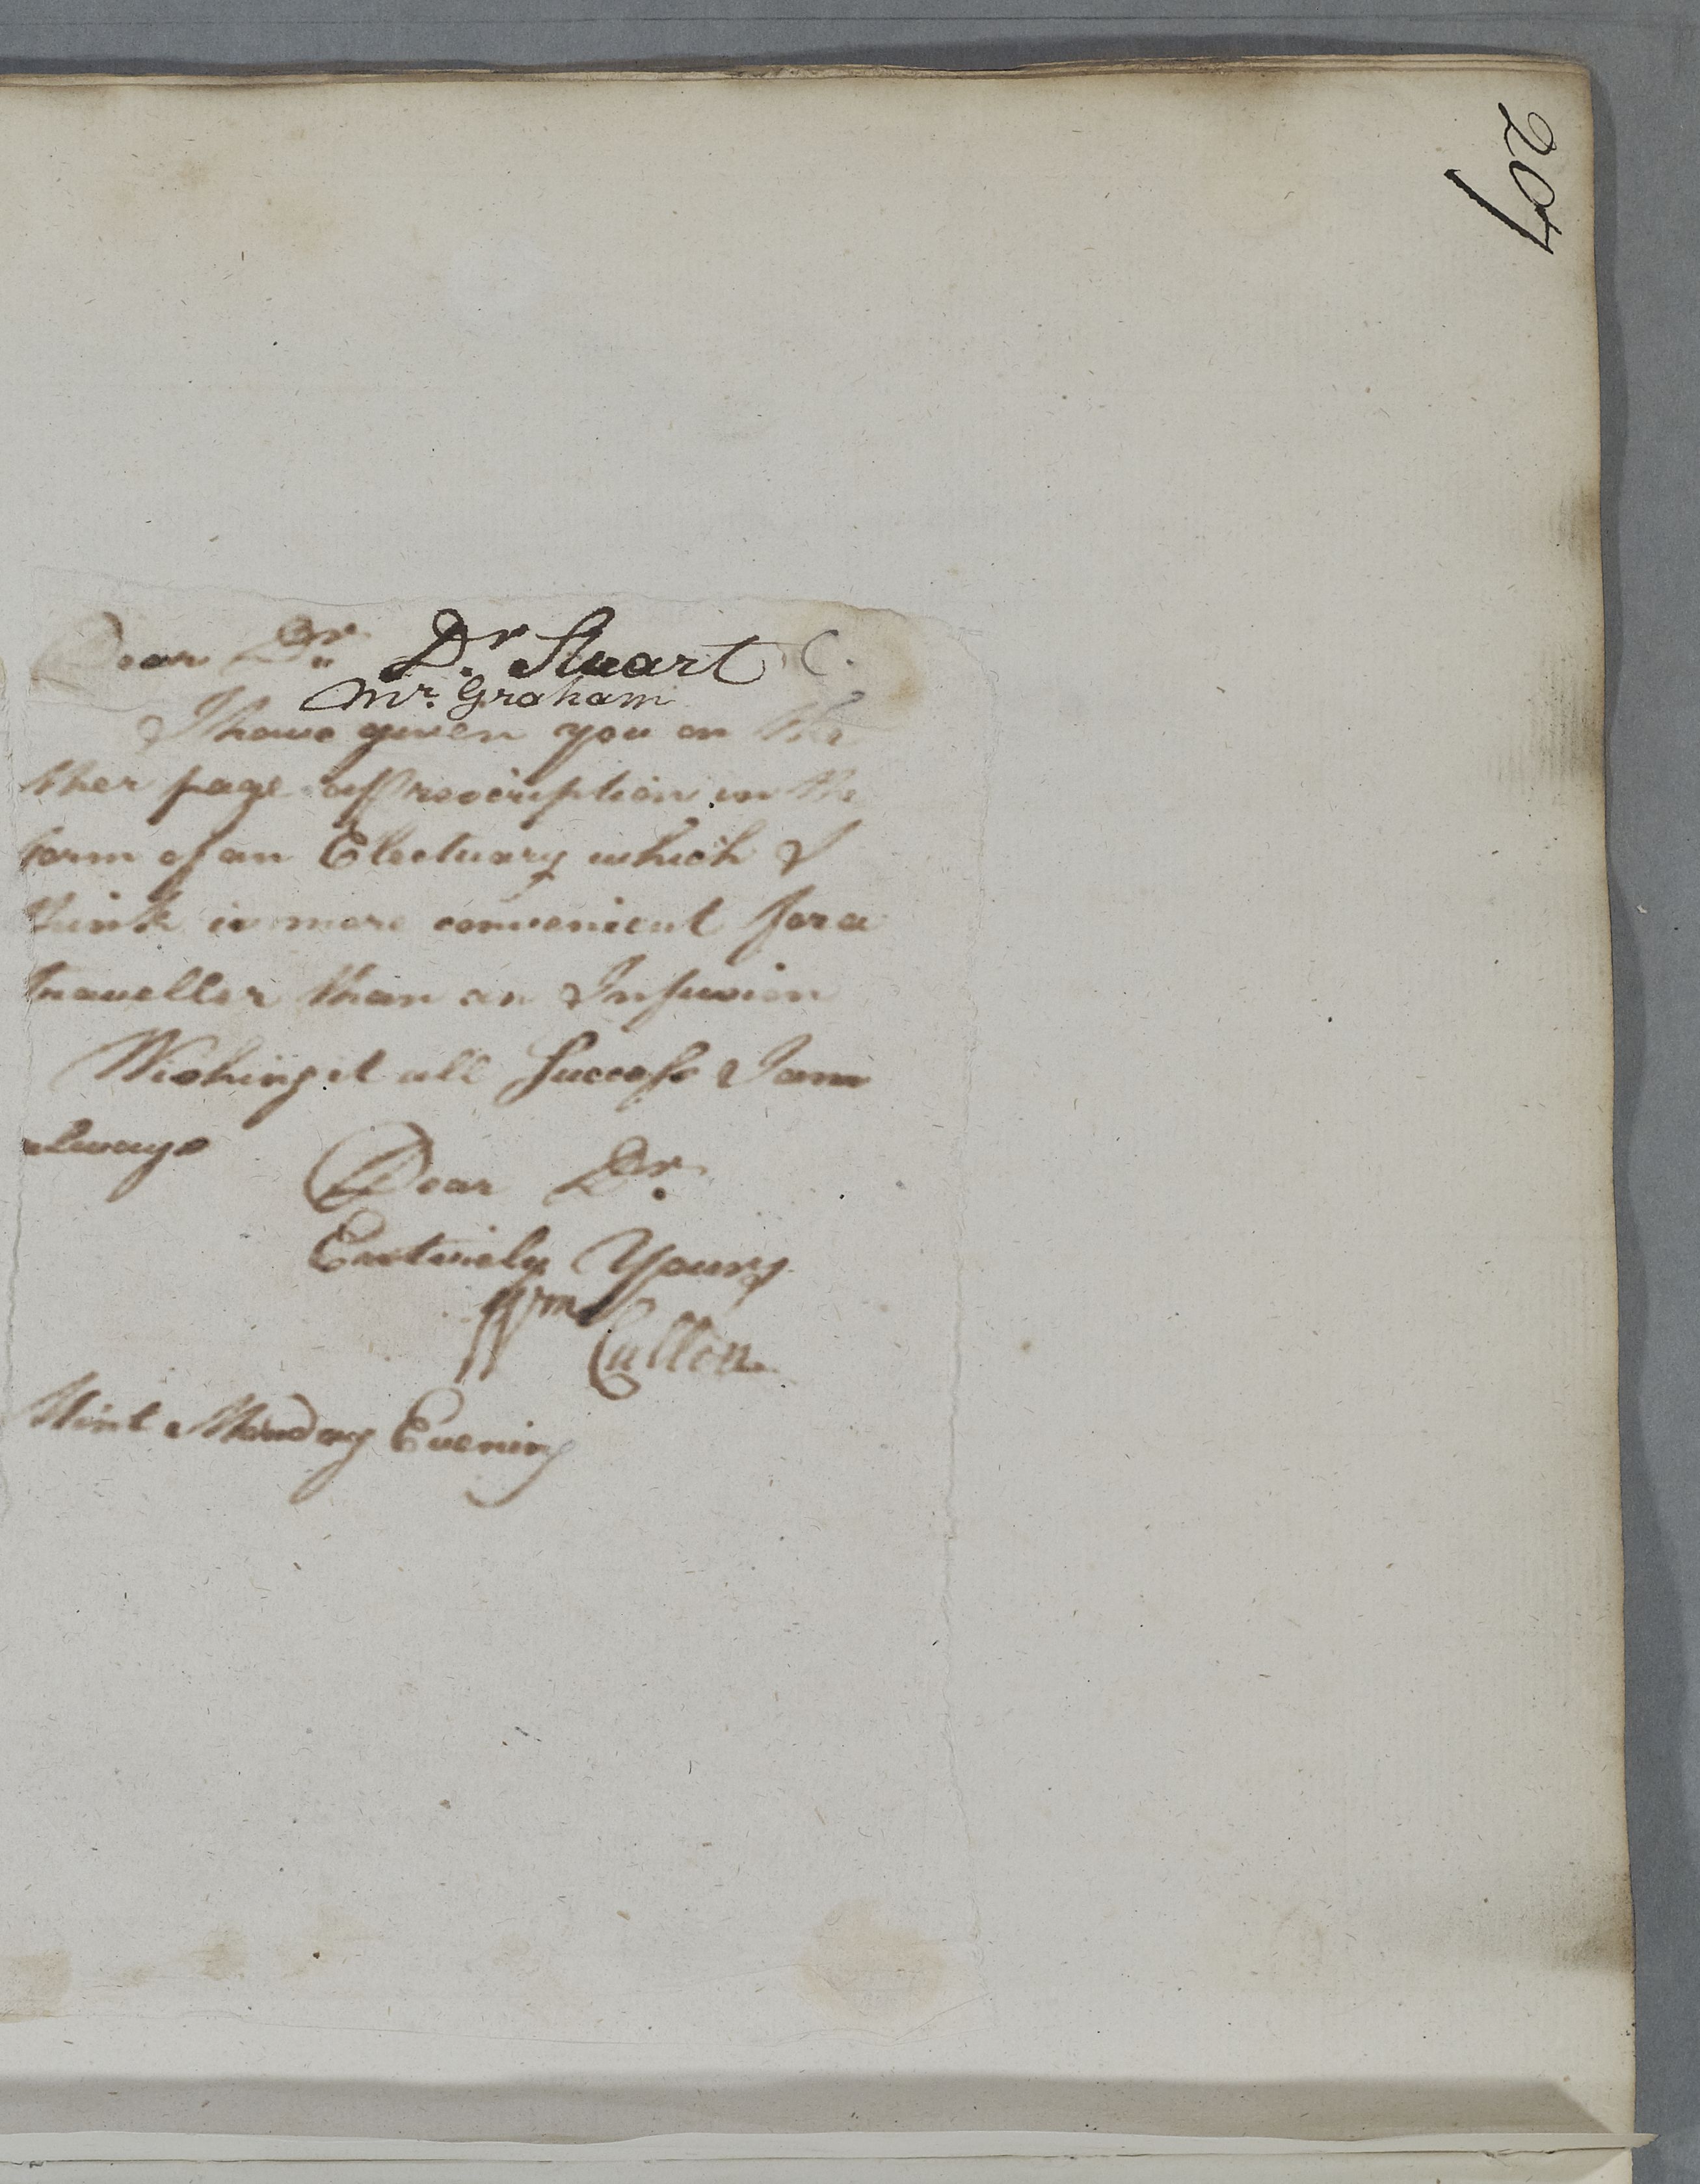 207
Dear Dr. Dr. Stuart C.
Mr. Graham
I have given you on the
ther page a Prescription in the
form of an Electuary which I
think is more convenient for a
traveller than an Infusion
Wishing it all Success I am
always
Dear Dr.
Entirely Yours
Wm Cullen
Mint Monday Evening